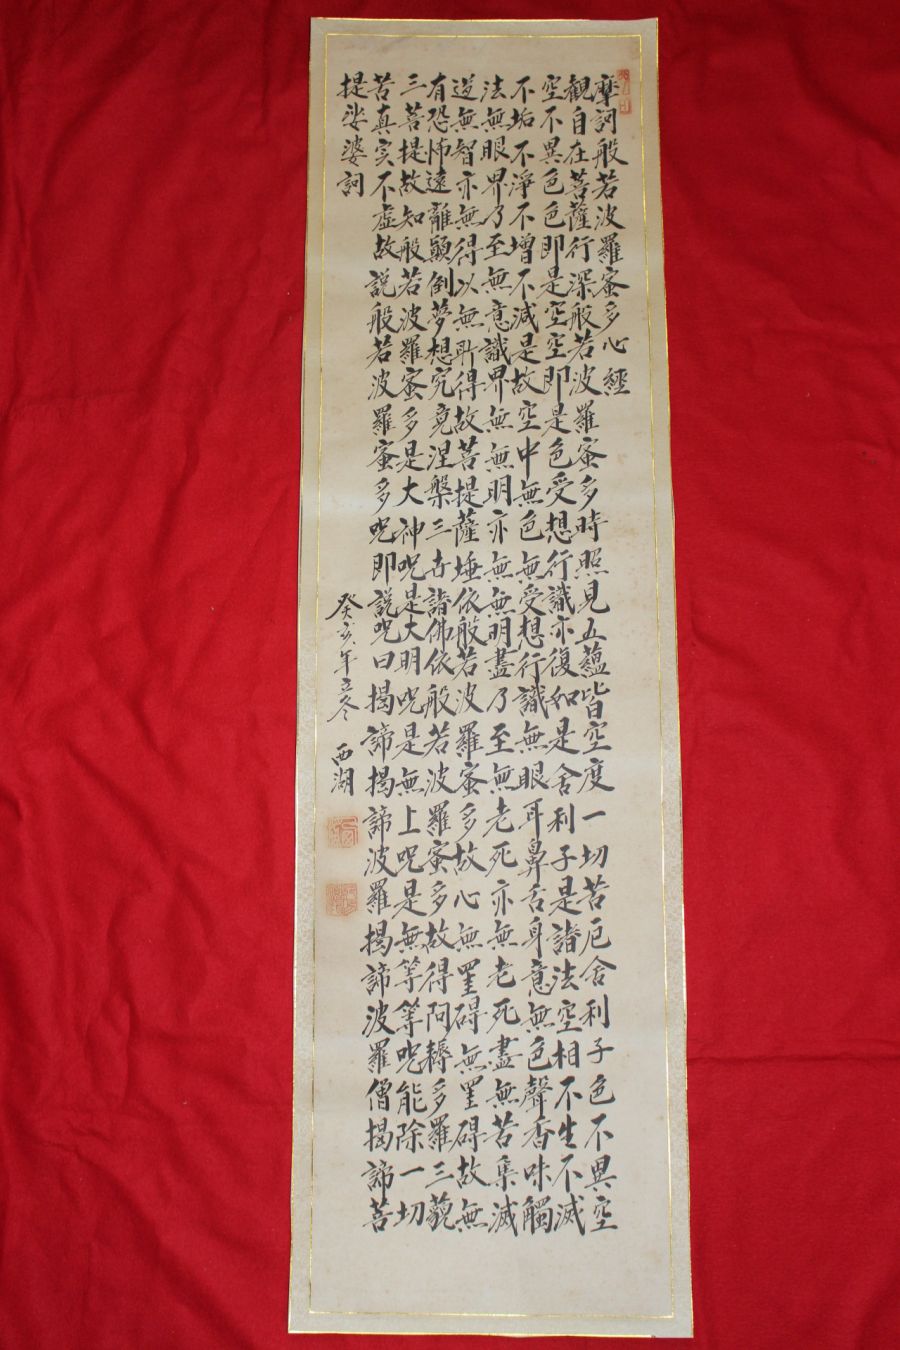 摩訶般若波羅蜜多心經
観自在菩薩行深般若波羅蜜多時照見五蘊皆空度一切苦厄舍利子色不異空
空不異色色即是空空即是色受想行識亦復如是舍利子是諸法空相不生不滅
不垢不淨不增不減是故空中無色無受想行識無眼耳鼻舌身意無色聲香味觸
法無眼界乃至無意識界無無明亦無無明盡乃至無老死亦無老死盡無苦集滅
道無智亦無得以無所得故菩提薩埵依般若波羅蜜多故心無罣碍無罣碍故無
有恐怖遠離顚倒夢想究竟涅槃三世諸佛依般若波羅蜜多故得阿耨多羅三藐
三菩提故知般若波羅蜜多是大神呪是大明呪是無上呪是無等等呪能除一切
苦真实不虛故説般若波羅蜜多呪即説呪曰揭諦揭諦波羅揭諦波羅僧揭諦菩
提娑婆訶
癸亥年立冬 西湖